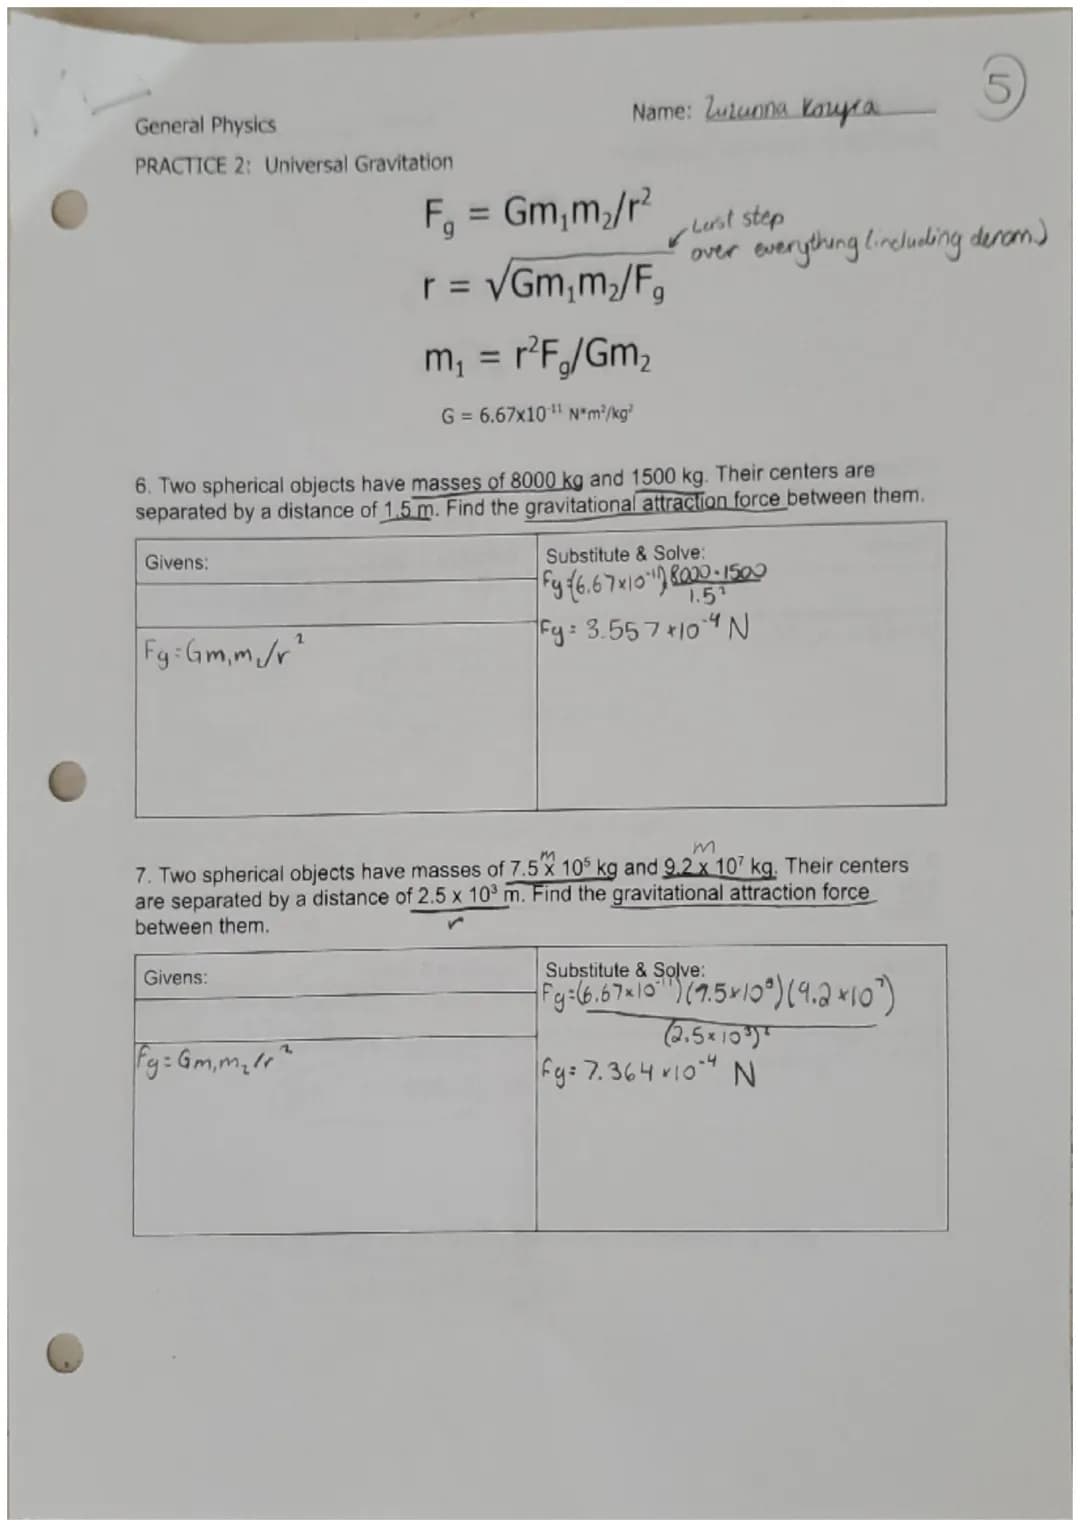 5
Name: Zuzanna
General Physics
PRACTICE 2: Universal Gravitation
Fg = Gm₁m₂/r²
Last step
over everything (including denom)
r = √Gm₁m₂/Fg
m₁ = r²Fg/Gm₂
G = 6.67x10⁻¹¹ N*m²/kg²
6. Two spherical objects have masses of 8000 kg and 1500 kg. Their centers are
separated by a distance of 1.5 m. Find the gravitational attraction force between them.
Givens:
Fg=Gm₁m₂/r²
Substitute & Solve:
Fg=(6.67x10⁻¹¹) 8000·1500
1.5²
Fg= 3.557x10⁻⁴ N
m m
7. Two spherical objects have masses of 7.5 x 10⁵ kg and 9.2 x 10⁷ kg. Their centers
are separated by a distance of 2.5 x 10³ m. Find the gravitational attraction force
r
between them.
Givens:
Fg=Gm₁m₂/r²
Substitute & Solve:
Fg=(6.67x10⁻¹¹)(7.5x10⁵)(9.2x10⁷)
(2.5x10³)²
Fg= 7.364x10⁻⁴ N